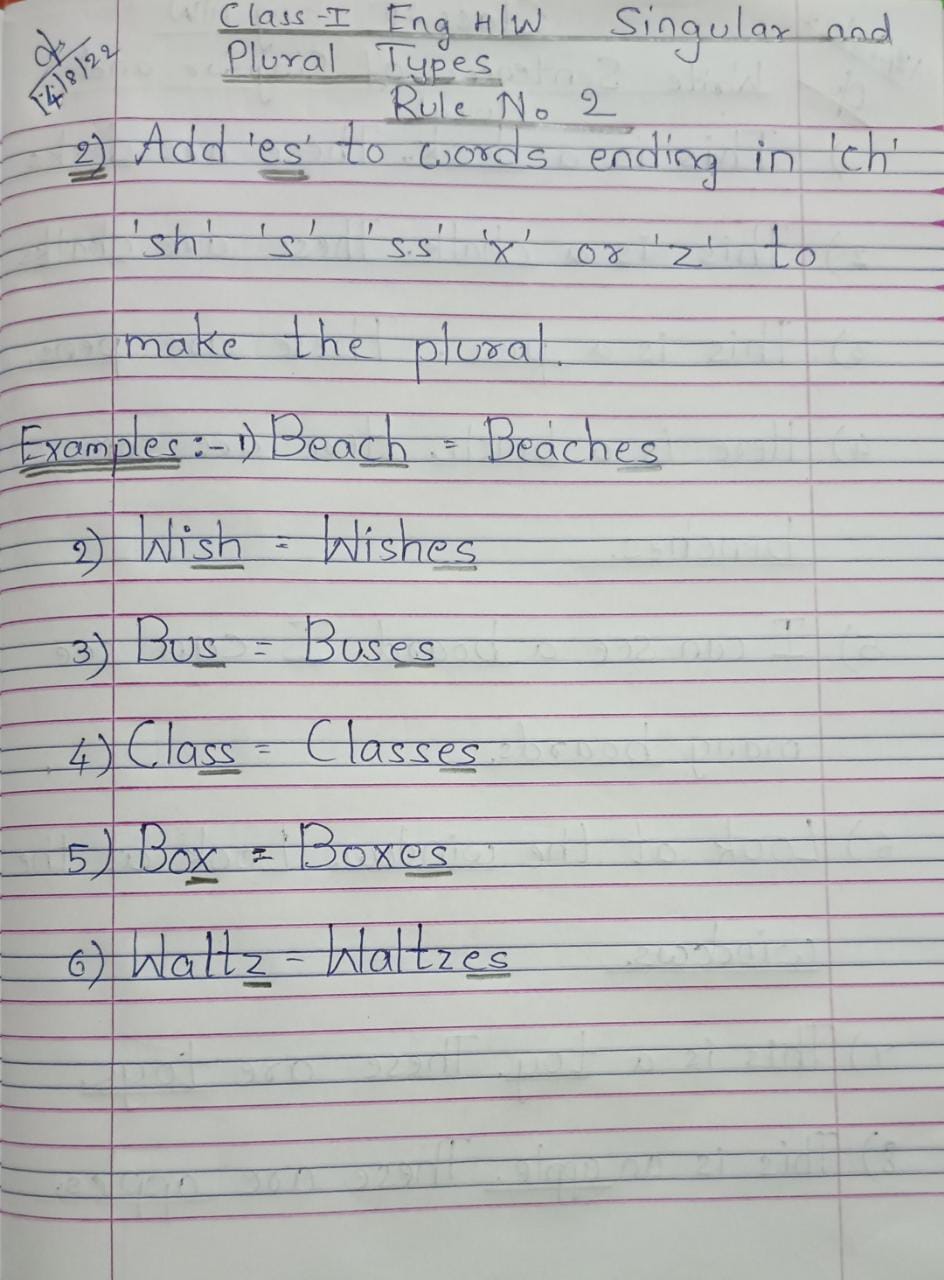 Class-I Eng H/W Singular and
Plural Types
14/8/22
Rule No 2
2) Add 'es' to words ending in 'ch'
'sh' 's' 'ss' 'x' or 'z' to
make the plural.
Examples:- 1) Beach = Beaches
2) Wish = Wishes
3) Bus = Buses
4) Class = Classes
5) Box = Boxes
6) Waltz - Waltzes